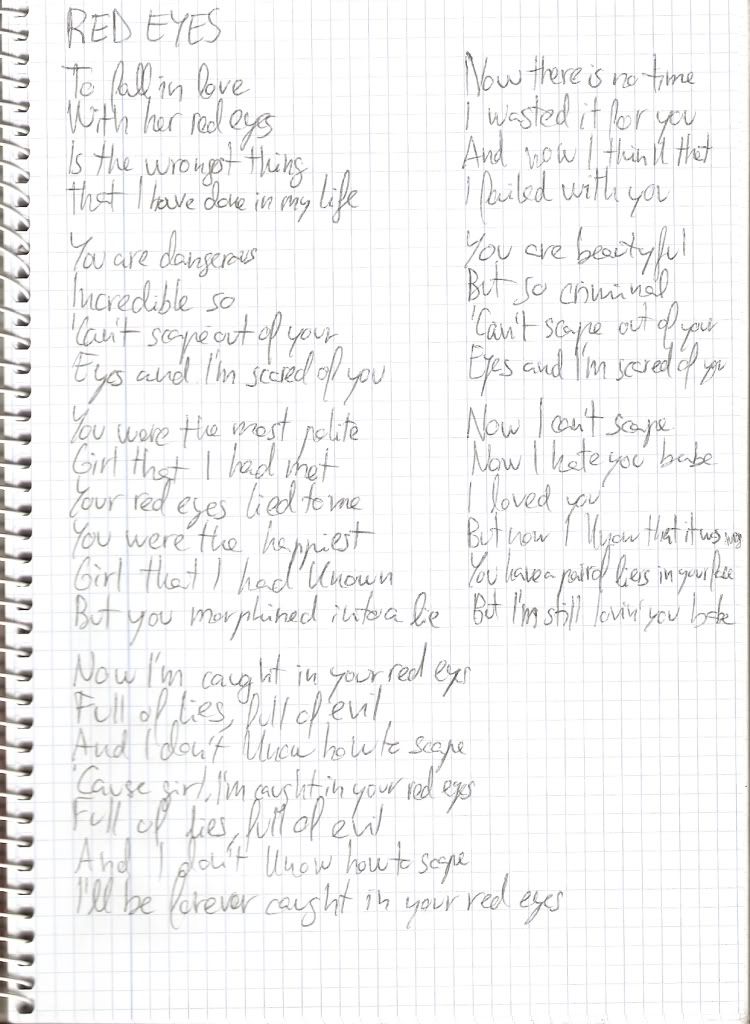 RED EYES
To fall in love
With her red eyes
Is the wrongest thing
that I have done in my life
You are dangerous
Incredible so
'Can't scape out of your
Eyes and I'm scared of you
You were the most polite
Girl that I had met
Your red eyes lied to me
You were the happiest
Girl that I had known
But you morphined into a lie
Now I'm caught in your red eys
Full of lies, full of evil
And I don't know how to scape
'Cause girl, I'm caught in your red eyes
Full of lies, full of evil
And I don't know how to scape
I'll be forever caught in your red eyes
Now there is no time
I wasted it for you
And now I think that
I failed with you
You are beautyful
But so criminal
'Can't scape out of your
Eyes and I'm scared of you
Now I can't scape
Now I hate you babe
I loved you
But now I know that it was
You have a pair of liers in your face
But I'm still lovin' you babe